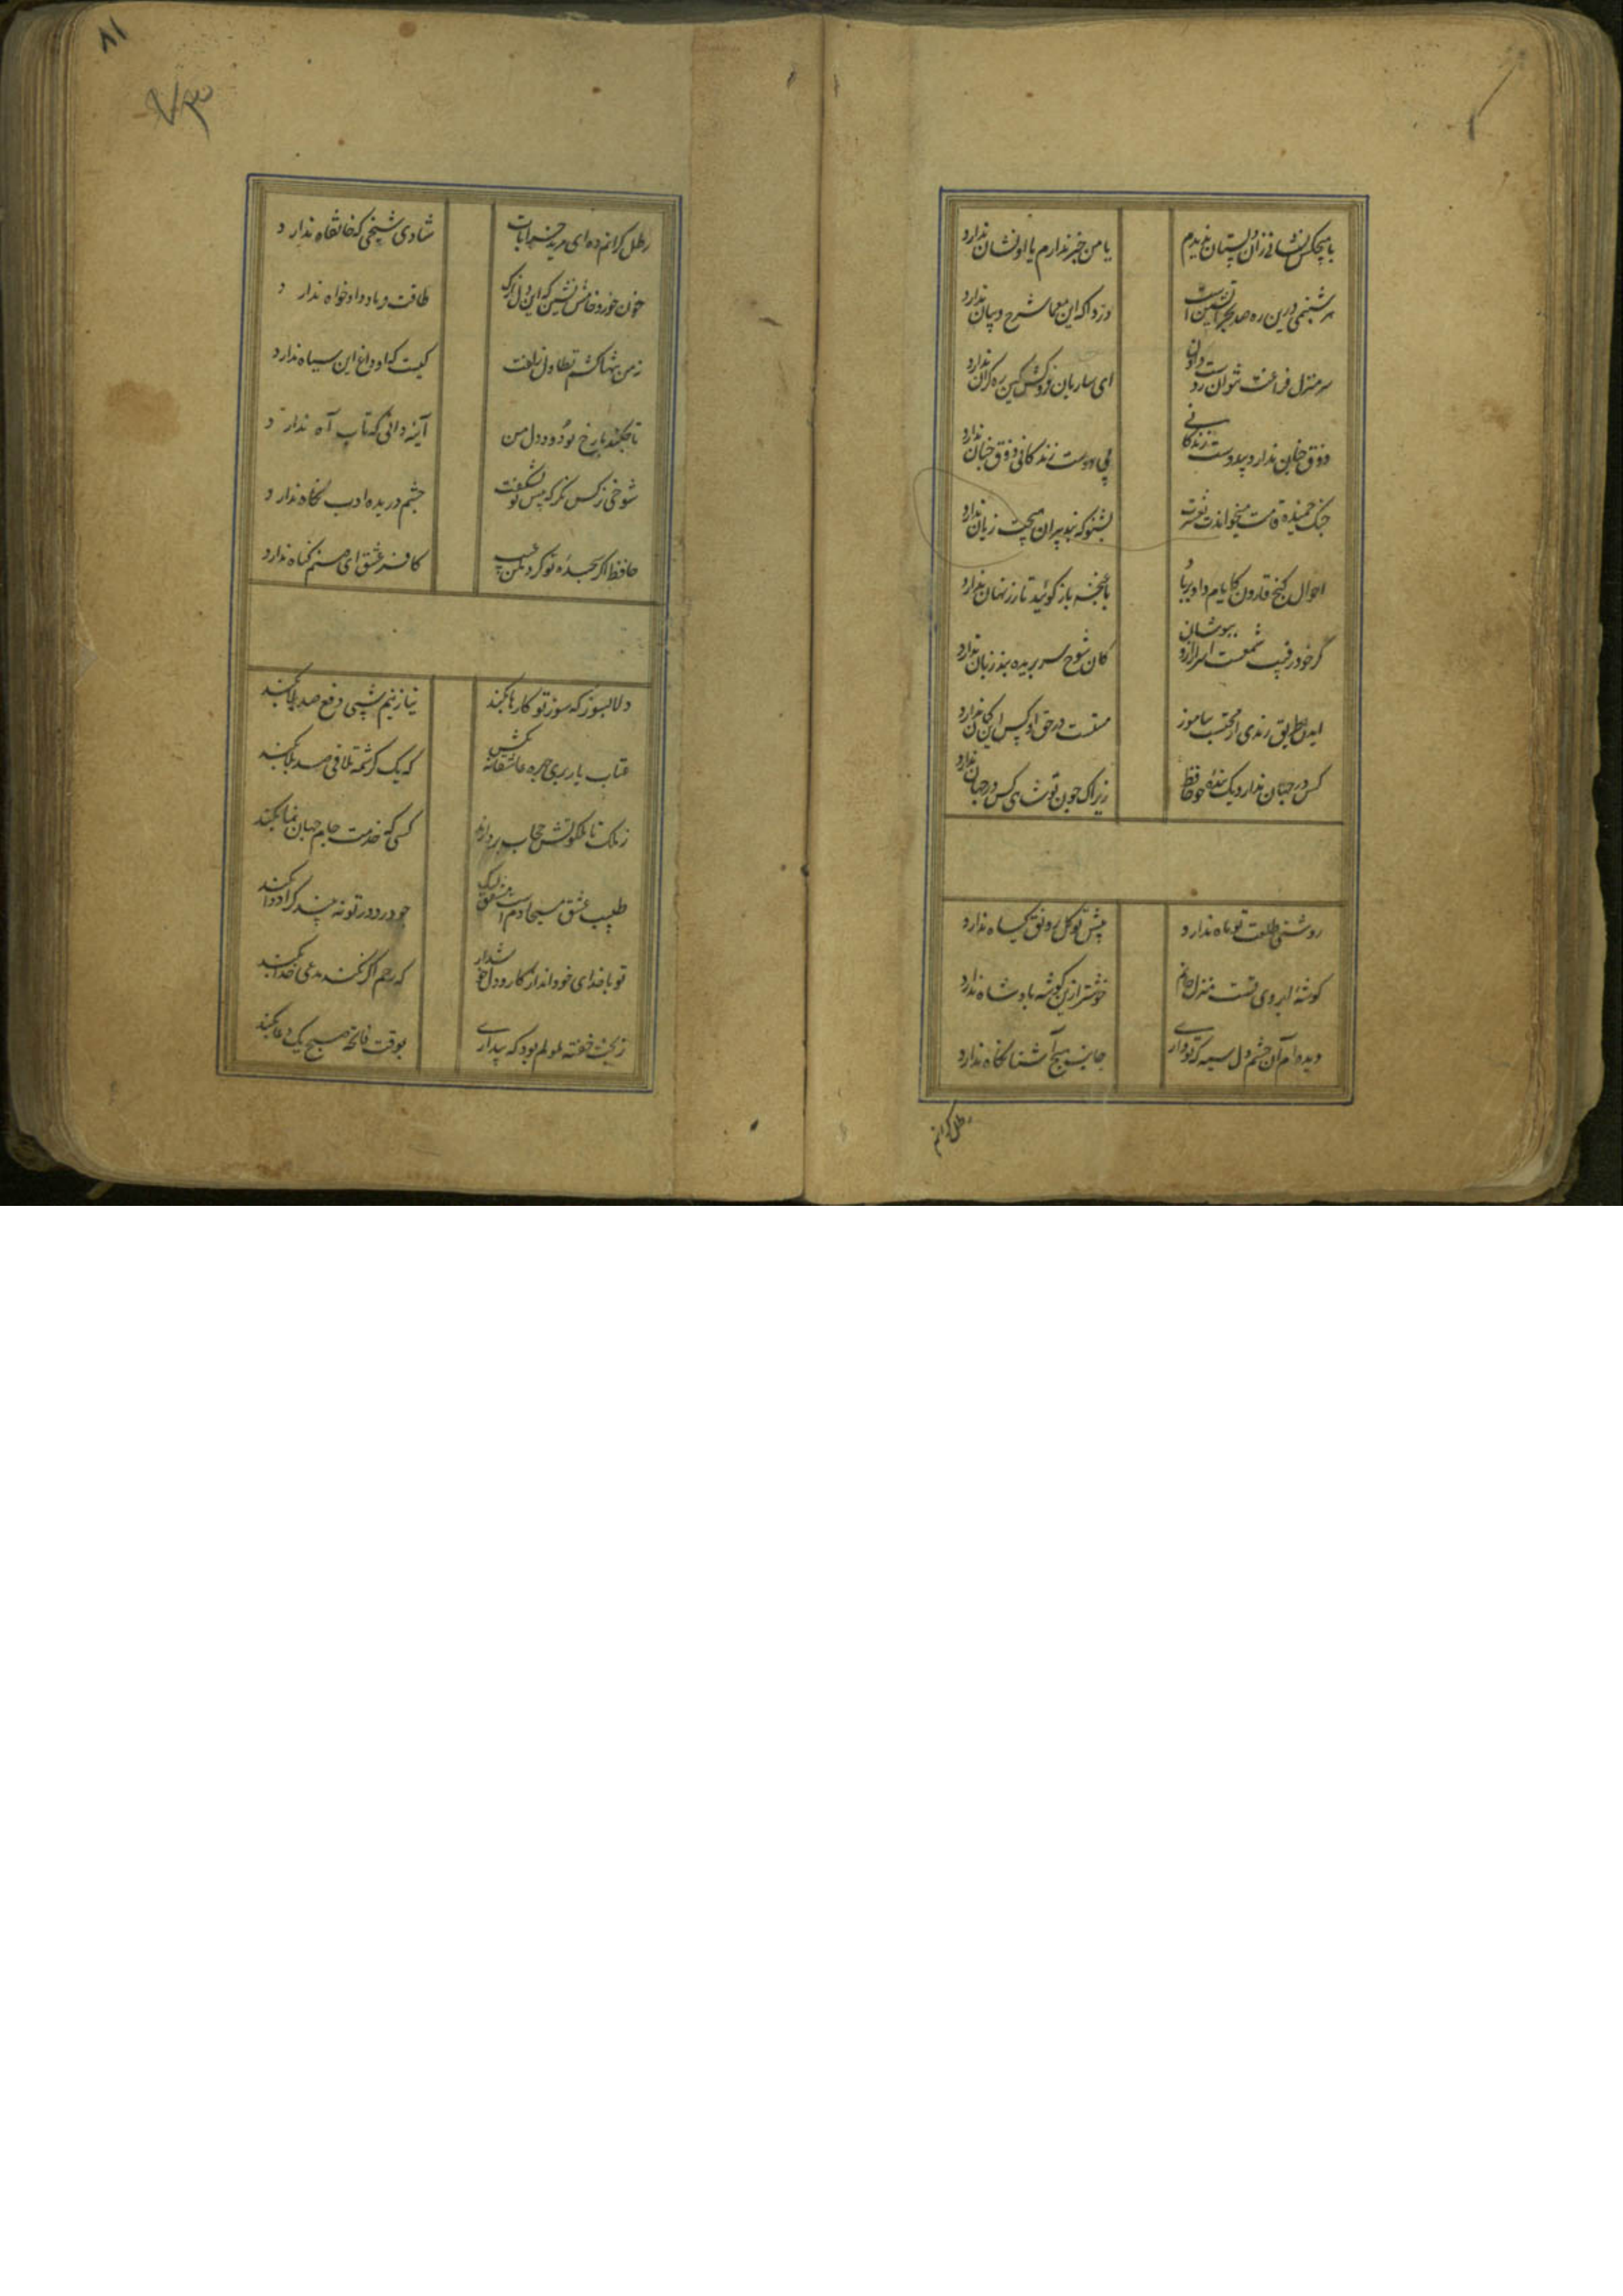 با هیچکس نشانی زان دلستان ندیدم
یا من خبر ندارم یا او نشان ندارد
هر شبنمی درین ره صد بحر آتشین است
درد اکه این معما شرح و بیان ندارد
سر منزل فراغت نتوان ز دست دادن
ای ساربان فروکش کین ره کران ندارد
ذوق چنان ندارد بیدوست زندگانی
بی دوست زندگانی ذوق چنان ندارد
چنک خمیده قامت میخواندت بعشرت
بشنو که پند پیران هیچت زیان ندارد
احوال کنج قارون کایام داد بر باد
با غنچه باز کوئید تا زر نهان ندارد
گر خود رقیب شمعست اسرار ازو بپوشان
کان شوخ سر بریده بند زبان ندارد
ایدل طریق رندی از محتسب بیاموز
مستست و در حق او کس این کمان ندارد
کس در جهان ندارد یک بندۀ چو حافظ
زیرا که چون تو شاهی کس در جهان ندارد
روشنی طلعت تو ماه ندارد
پیش تو کل رونق کیاه ندارد
کوشۀ ابروی تست منزل جانم
خوشتر ازین کوشه پادشاه ندارد
دیده ام آن چشم دل سیه که تو داری
جانب هیچ آشنا نکاه ندارد
رطل کرانم
۸۱
۷۳
رطل کرانم ده ای مرید خرابات
شادی شیخی که خانقاه ندارد
خون خور و خامش نشین که این دل نازک
طاقت فریاد دادخواه ندارد
نه من تنها کشم تطاول زلفت
کیست که او داغ این سیاه ندارد
تا چکند با رخ تو دود دل من
آینه دانی که تاب آه ندارد
شوخی نرکس نکر که پیش تو بشکفت
چشم دریده ادب نکاه ندارد
حافظ اکر سجدۀ تو کرد مکن عیب
کافر عشق ای صنم کناه ندارد
دلا بسوز که سوز تو کارها بکند
نیاز نیم شبی دفع صد بلا بکند
عتاب یار پری چهره عاشقانه بکش
که یک کرشمه تلافی صد بلا بکند
ز ملک تا ملکوتش حجاب بردارند
کسی که خدمت جام جهان نما بکند
طبیب عشق مسیحا دم است و مشفق لیک
چو درد در تو نه بیند کرا دوا بکند
تو با خدای خود انداز کار و دل خوش دار
که رحم اکر نکند مدعی خدا بکند
ز بخت خفته ملولم بود که بیداری
بوقت فاتحه صبح یک دعا بکند